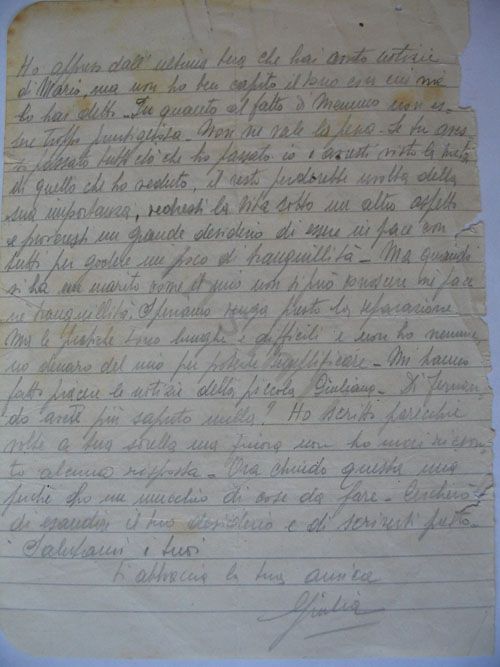 Ho appreso dall'ultima tua che hai avuto notizie
di Mario, ma non ho ben capito il tono con cui me
lo hai detto - In quanto al fatto di Memmo non es-
sere troppo puntigliosa - Non ne vale la pena - Se tu aves-
si passato tutto ciò che ho passato io e avessi visto la metà
di quello che ho veduto, il resto perderebbe molta della
sua importanza, vedresti la vita sotto un altro aspetto
e proveresti un grande desiderio di essere in pace con
tutti per godere un poco di tranquillità - Ma quando
si ha un marito come il mio non si può conoscere né pace
né tranquillità. Speriamo venga presto la separazione
Ma le pratiche sono lunghe e difficili e non ho nemme-
no denaro del mio per poterle
fatto piacere le notizie della piccola Giuliana - Di Fernan-
do avete più saputo nulla? Ho scritto parecchie
volte a tua sorella ma finora non ho mai ricevu-
to alcuna risposta - Ora chiudo questa mia
perché ho un mucchio di cose da fare - Cercherò
di esaudire il tuo desiderio e di scriverti presto -
Salutami i tuoi
ti abbraccia la tua amica
Giulia